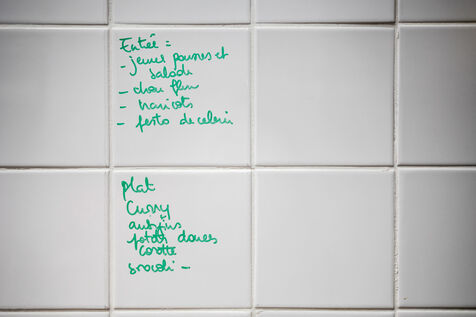 Entrée =
- jeunes pousses et
salade
- chou fleur
- haricots
- pesto de celeri
plat
Curry
patates douces
carotte
brocoli -